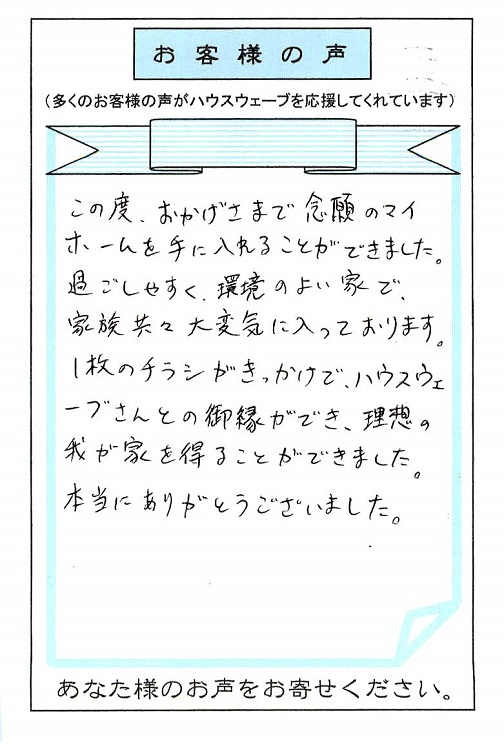 お客様の声
（多くのお客様の声がハウスウェーブを応援してくれています）
この度、おかげさまで念願のマイ
ホームを手に入れることができました。
過ごしやすく、環境のよい家で、
家族共々大変気に入っております。
1枚のチラシがきっかけで、ハウスウェ
ーブさんとの御縁ができ、理想の
我が家を得ることができました。
本当にありがとうございました。
あなた様のお声をお寄せください。